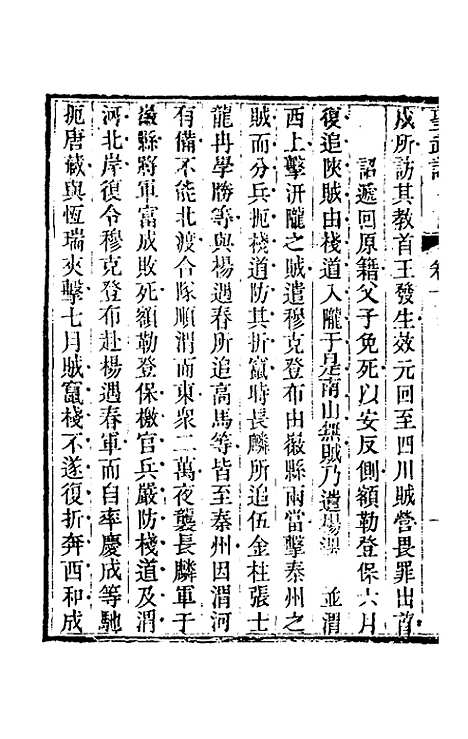 聖武記
卷十
成所訪其教首王發生效元回至四川賊營畏罪出首
詔遞回原籍父子免死以安反側額勒登保六月
復追陝賊由棧道入隴于是南山無賊乃遣楊 並渭
西上擊汧隴之賊遣穆克登布由徽縣兩當擊秦州之
賊而分兵扼棧道防其折竄時長麟所追伍金柱張士
龍冉學勝等與楊遇春所追高馬等皆至秦州因渭河
有備不能北渡合隊順渭而東衆二萬夜襲長麟軍于
徽縣將軍富成敗死額勒登保檄官兵嚴防棧道及渭
河北岸復令穆克登布赴楊遇春軍而自率慶成等馳
扼唐藏與恆瑞夾擊七月賊竄棧不遂復折奔西和成